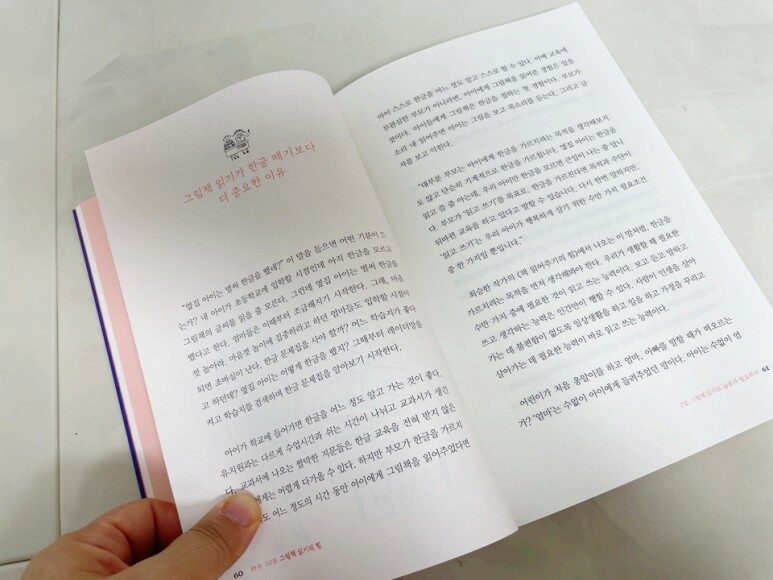 그림책 읽기가 한글 떼기보다
더 중요한 이유
"옆집 아이는 벌써 한글을 뗐네?" 이 말을 들으면 어떤 기분이 드
는가? 내 아이가 초등학교에 입학할 시점인데 아직 한글을 모르고
그림책의 글씨를 읽을 줄 모른다. 그런데 옆집 아이는 벌써 한글을
뗐다고 한다. 엄마들은 이때부터 조급해지기 시작한다. 그래, 마음
껏 놀아라. 마음껏 놀이에 집중하라고 하던 엄마들도 입학할 시점이
되면 조바심이 난다. 한글 문제집을 사야 할까? 어느 학습지가 좋다
고 하던데? 옆집 아이는 어떻게 한글을 뗐지? 그때부터 레이더망을
켜고 학습지를 검색하며 한글 문제집을 알아보기 시작한다.
아이가 학교에 들어가면 한글을 어느 정도 알고 가는 것이 좋다.
유치원과는 다르게 수업시간과 쉬는 시간이 나뉘고 교과서가 생긴
다. 교과서에 나오는 짤막한 지문들은 한글 교육을 전혀 받지 않은
에게는 어렵게 다가올 수 있다. 하지만 부모가 한글을 가르치
도 어느 정도의 시간 동안 아이에게 그림책을 읽어주었다면
60 하루 10분 그림책 읽기의 힘
아이 스스로 한글을 어느 정도 알고 스스로 할 수 있다. 아예 교육에
무관심한 부모가 아니라면, 아이에게 그림책을 읽어준 경험은 있을
것이다. 아이들에게 그림책은 한글을 접하는 첫 경험이다. 부모가
소리 내 읽어주면 아이는 그림을 보고 목소리를 듣는다. 그리고 글
자를 보고 익힌다.
"대부분 부모는 아이에게 한글을 가르치려는 목적을 생각해보지
도 않고 단순히 기계적으로 한글을 가르칩니다. 옆집 아이는 한글을
읽고 쓸 줄 아는데, 우리 아이만 한글을 모르면 큰일이 나는 줄 압니
다. 부모가 '읽고 쓰기'를 목표로, 한글을 가르친다면 목적과 수단이
뒤바뀐 교육을 하고 있다고 말할 수 있습니다. 다시 한번 말하지만,
'읽고 쓰기'는 우리 아이가 행복하게 살기 위한 수만 가지 필요조건
중 한 가지일 뿐입니다."
최승한 작가의 《책 읽어주기의 힘》에서 나오는 이 말처럼, 한글을
가르치려는 목적을 먼저 생각해봐야 한다. 우리가 생활할 때 필요한
수만 가지 중에 필요한 것이 읽고 쓰는 능력이다. 보고 듣고 말하고
쓰고 생각하는 능력은 인간만이 행할 수 있다. 사람이 인생을 살아
가는 데 불편함이 없도록 일상생활을 하고 일을 하고 가정을 꾸리고
살아가는 데 필요한 능력이 바로 읽고 쓰는 능력이다.
어린이가 처음 옹알이를 하고 엄마, 아빠를 말할 때가 떠오르는
가? '엄마'는 수없이 아이에게 들려주었던 말이다. 아이는 수없이 엄
1장 그림책 읽기도 공부가 필요하다 61